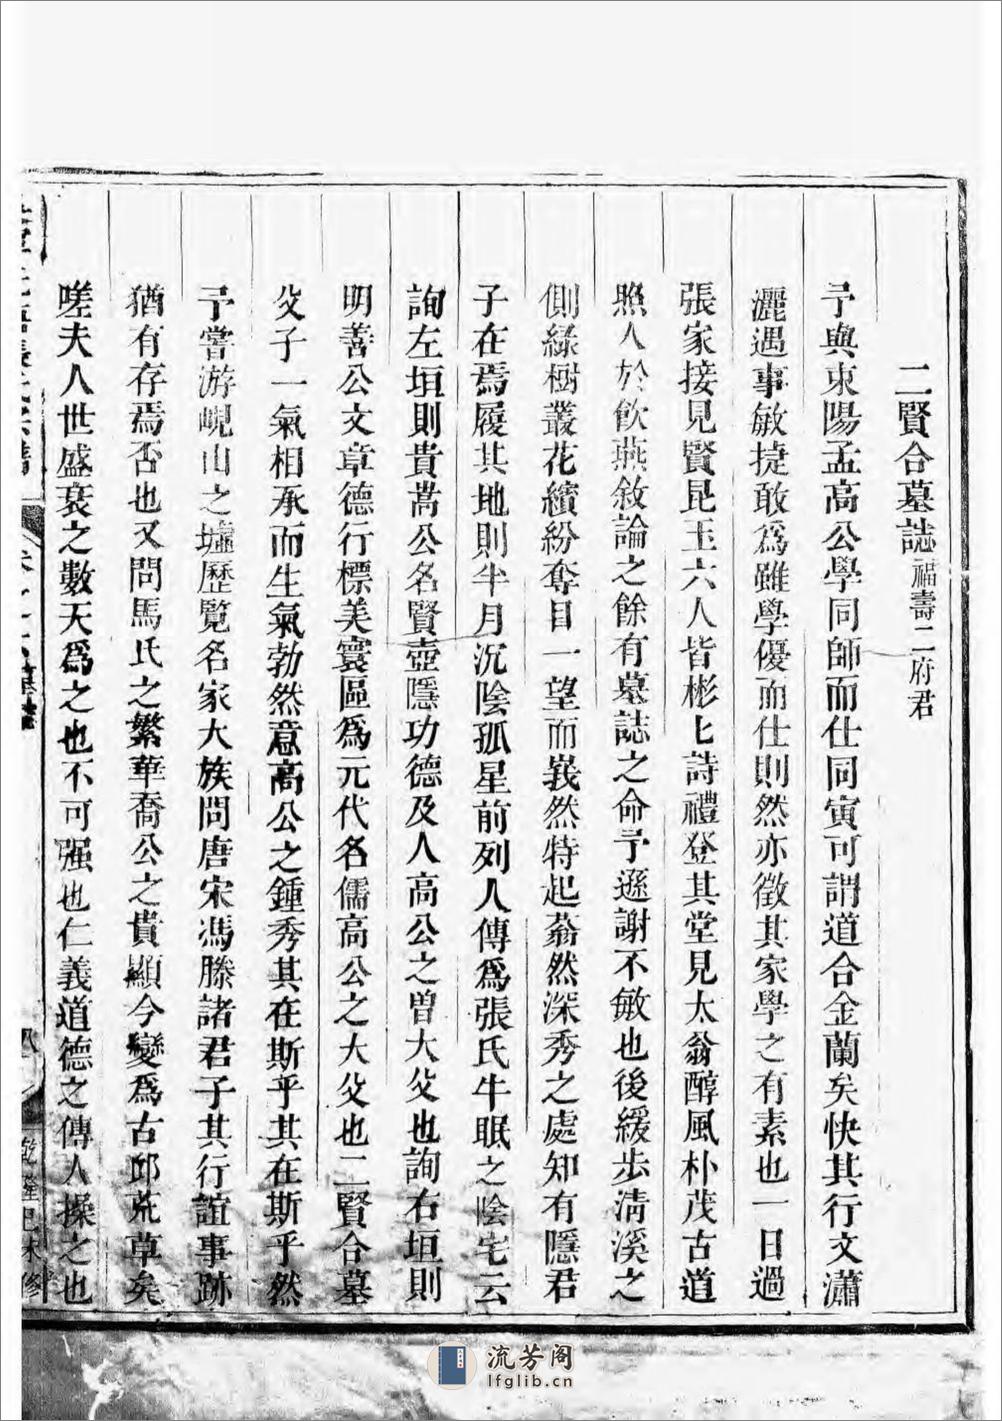 二賢合墓誌福壽二府君
予與東陽孟高公學同師而仕同寅可謂道合金蘭矣快其行文瀟
灑遇事敏捷敢爲雖學優而仕則然亦徵其家學之有素也一日過
張家接見賢昆玉六人皆彬匕詩禮登其堂見太翁醇風朴茂古道
照人於飲燕敘論之餘有墓誌之命予遜謝不敏也後緩步清溪之
側綠樹叢花繽紛奪目一望而峩然特起蓊然深秀之處知有隱君
子在焉履其地則半月沉陰孤星前列人傳爲張氏牛眠之陰宅云
詢左垣則貴嵩公名賢壺隱功德及人高公之曽大父也詢右垣則
明善公文章德行標美寰區爲元代名儒高公之大父也二賢合墓
父子一氣相承而生氣勃然意高公之鍾秀其在斯乎其在斯乎然
予嘗游峴山之墟歷覽名家大族問唐宋馮滕諸君子其行誼事跡
猶有存焉否也又問馬氏之繁華喬公之貴顯今變爲古邱荒草矣
嗟夫人世盛衰之數天爲之也不可强也仁義道德之傳人操之也
八
乾隆己未修
流芳阁
lfglib.cn